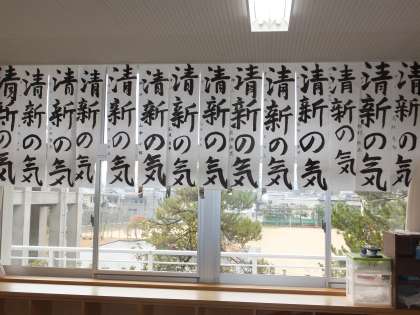 清新の気
清新の気
清新の気
清新の気
清新の気
清新の気
清新の気
清新の気
清新の気
清新の気
清新の気
清新の気
清新の気
清新の気